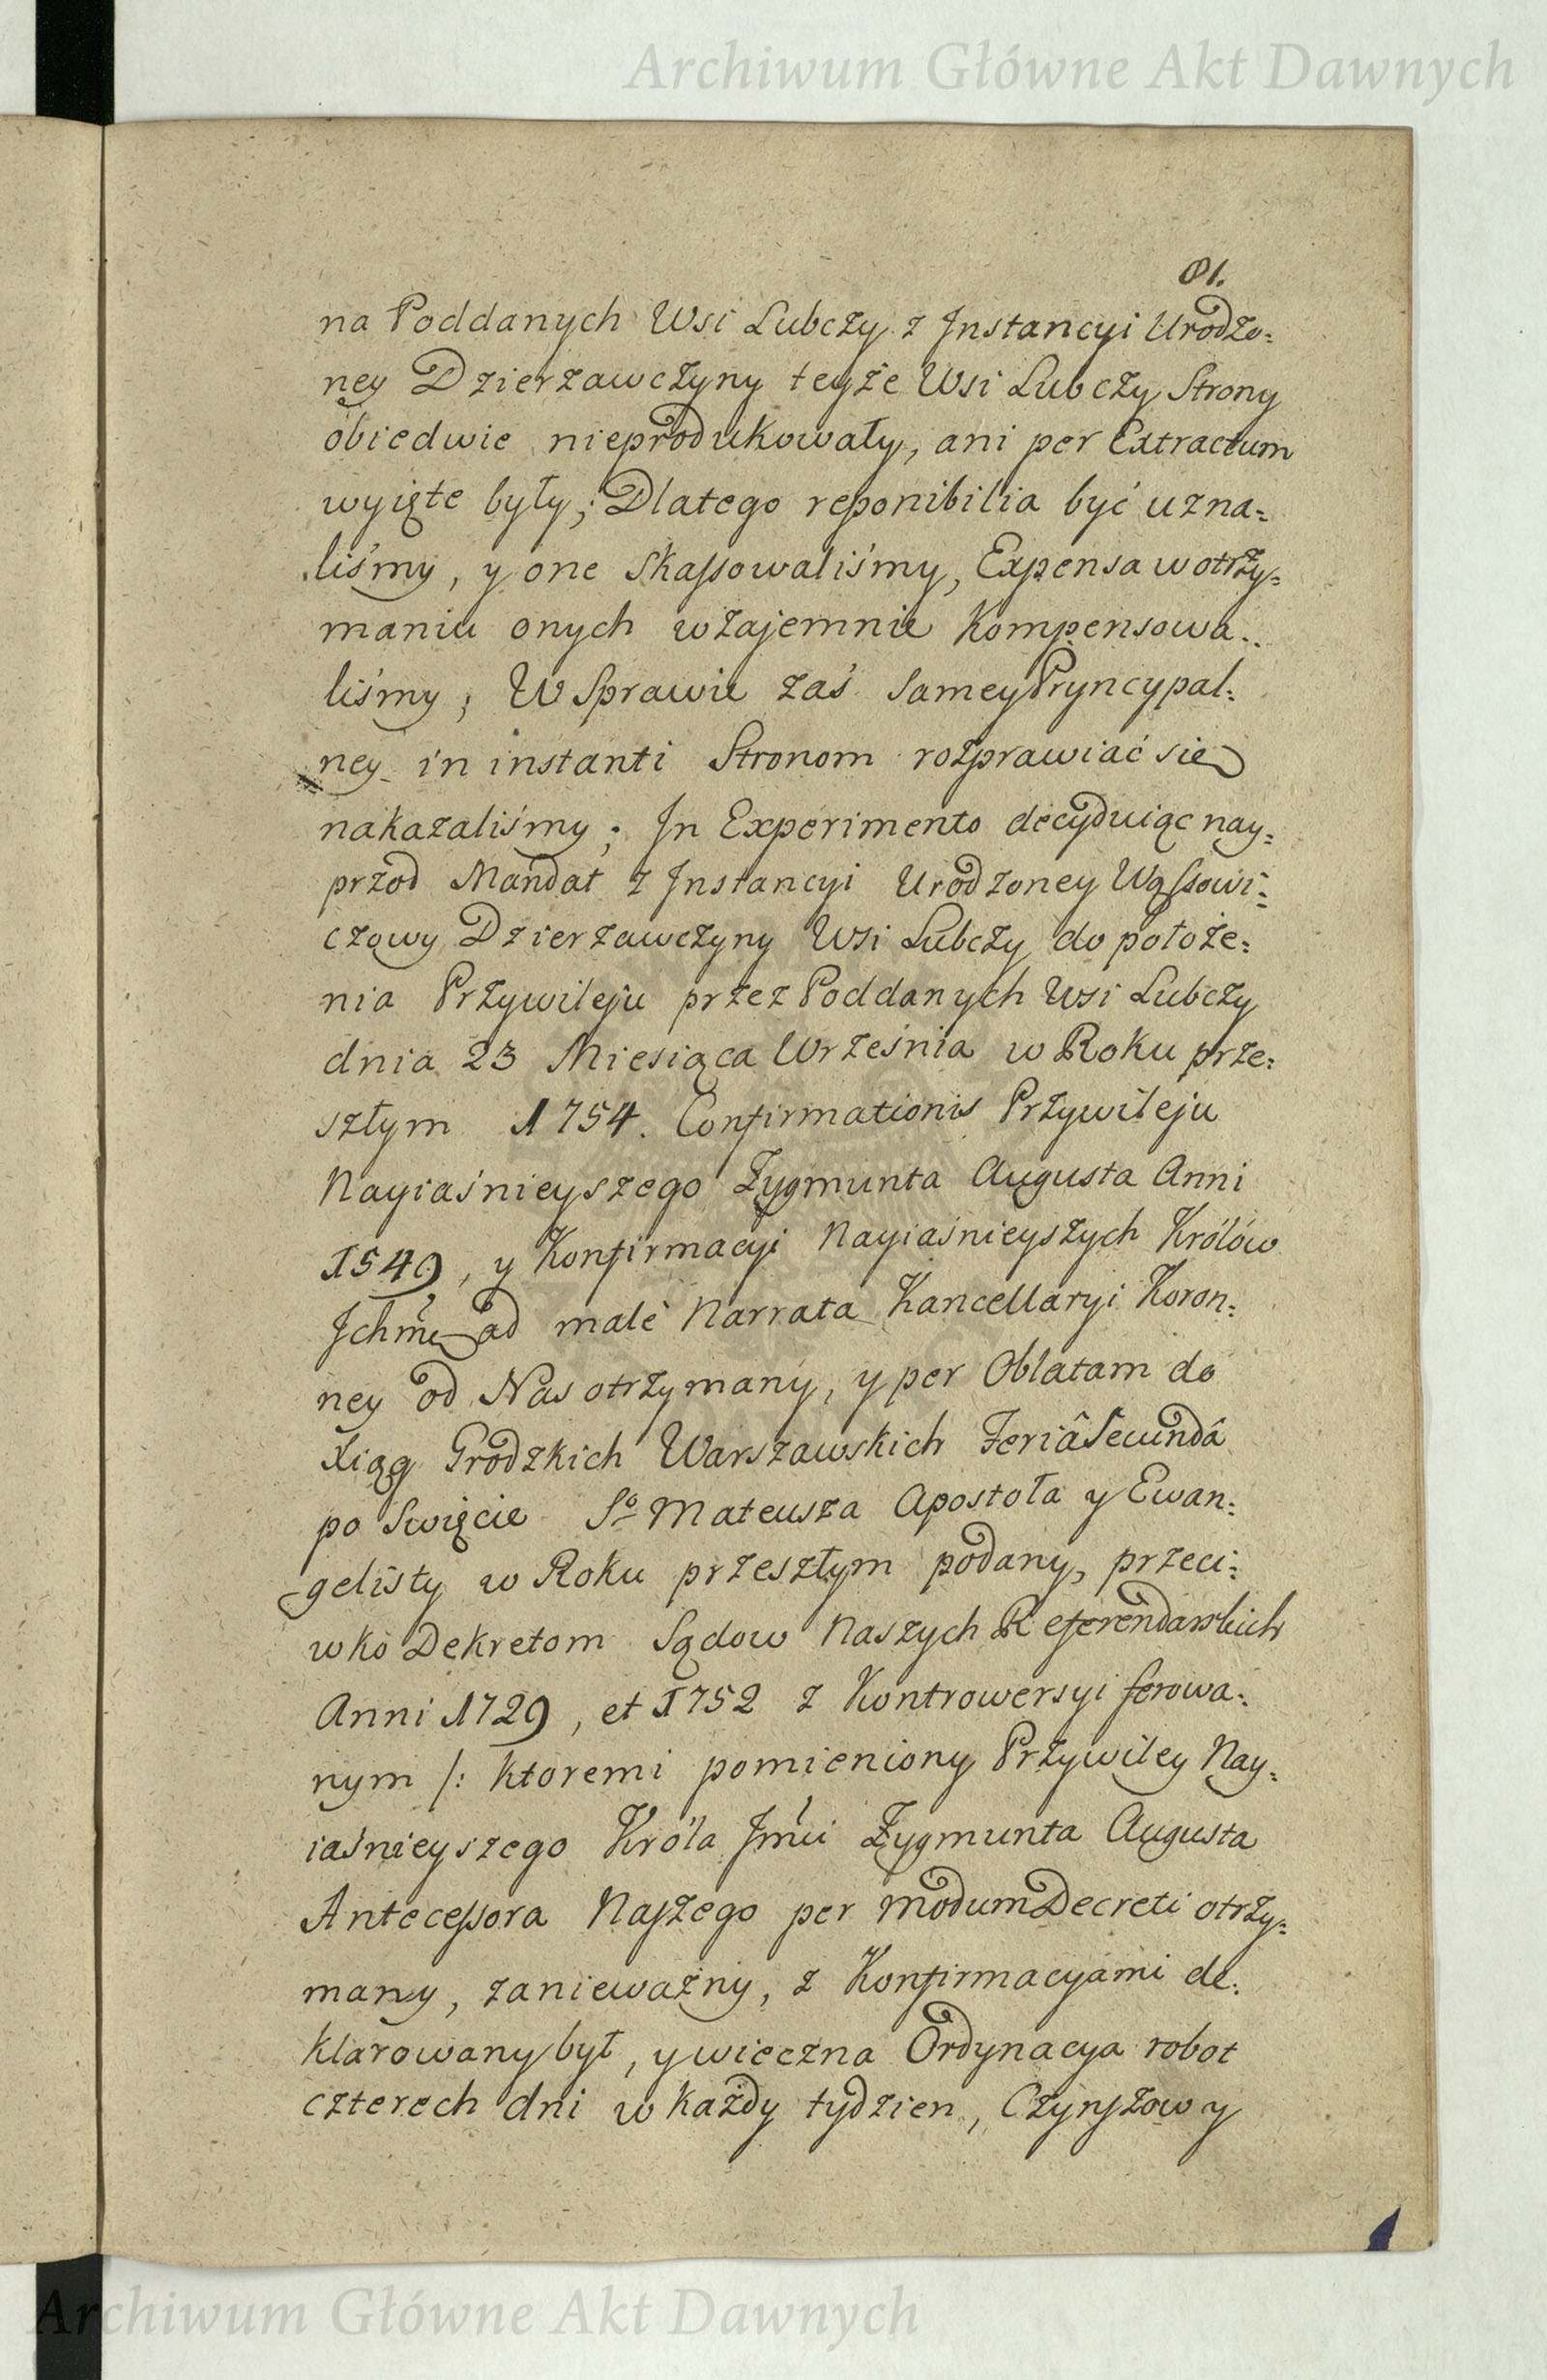 Archiwum Główne Akt Dawnych
81.
na Poddanych Wsi Lubczy z Jnstancyi Urodzo=
ney Dzierzawczyny teyże Wsi Lubczy Strony
obiedwie nieprodukowały, ani per Extractum
wyięte były; Dlatego reponibilia być uzna=
liśmy, y one skassowaliśmy, Expensa w otrzy=
maniu onych wzajemnie kompensowa=
liśmy; W Sprawie zaś samey Pryncypal=
ney in instanti Stronom rozprawiać się
nakazaliśmy; Jn Experimento decyduiąc nay=
przod Mandat z Jnstancyi Urodzoney Wąssowi=
czowy Dzierzawczyny Wsi Lubczy do położe=
nia Przywileju przez Poddanych Wsi Lubczy
dnia 23 Miesiąca Września w Roku prze=
szłym 1754. Confirmationis Przywileju
Nayiaśnieyszego Zygmunta Augusta Anni
1549, y Konfirmacyi Nayiaśnieyszych Królów
Jchmć ad malè Narrata Kancellaryi Koron=
ney od Nas otrzymany, y per Oblatam do
Xiąg Grodzkich Warszawskich Feriâ Secundâ
po Swięcie So Mateusza Apostoła y Ewan=
gelisty w Roku przeszłym podany, przeci=
wko Dekretom Sądow Naszych Referendarskich
Anni 1729, et 1752 z Kontrowersyi ferowa=
nym /: ktoremi pomieniony Przywiley Nay=
iaśnieyszego Króla Jmći Zygmunta Augusta
Antecessora Naszego per modum Decreti otrzy=
many, zanieważny, z Konfirmacyami de=
klarowany był, y wieczna Ordynacya robot
czterech dni w każdy tydzien, Czynszow y
Archiwum Główne Akt Dawnych